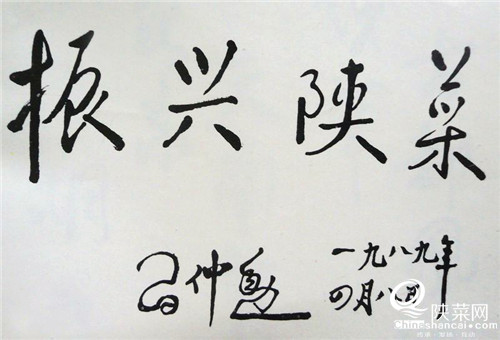 振兴陕菜
习仲勋
一九八九年
四月八日
陕菜网
Chinashancai.com